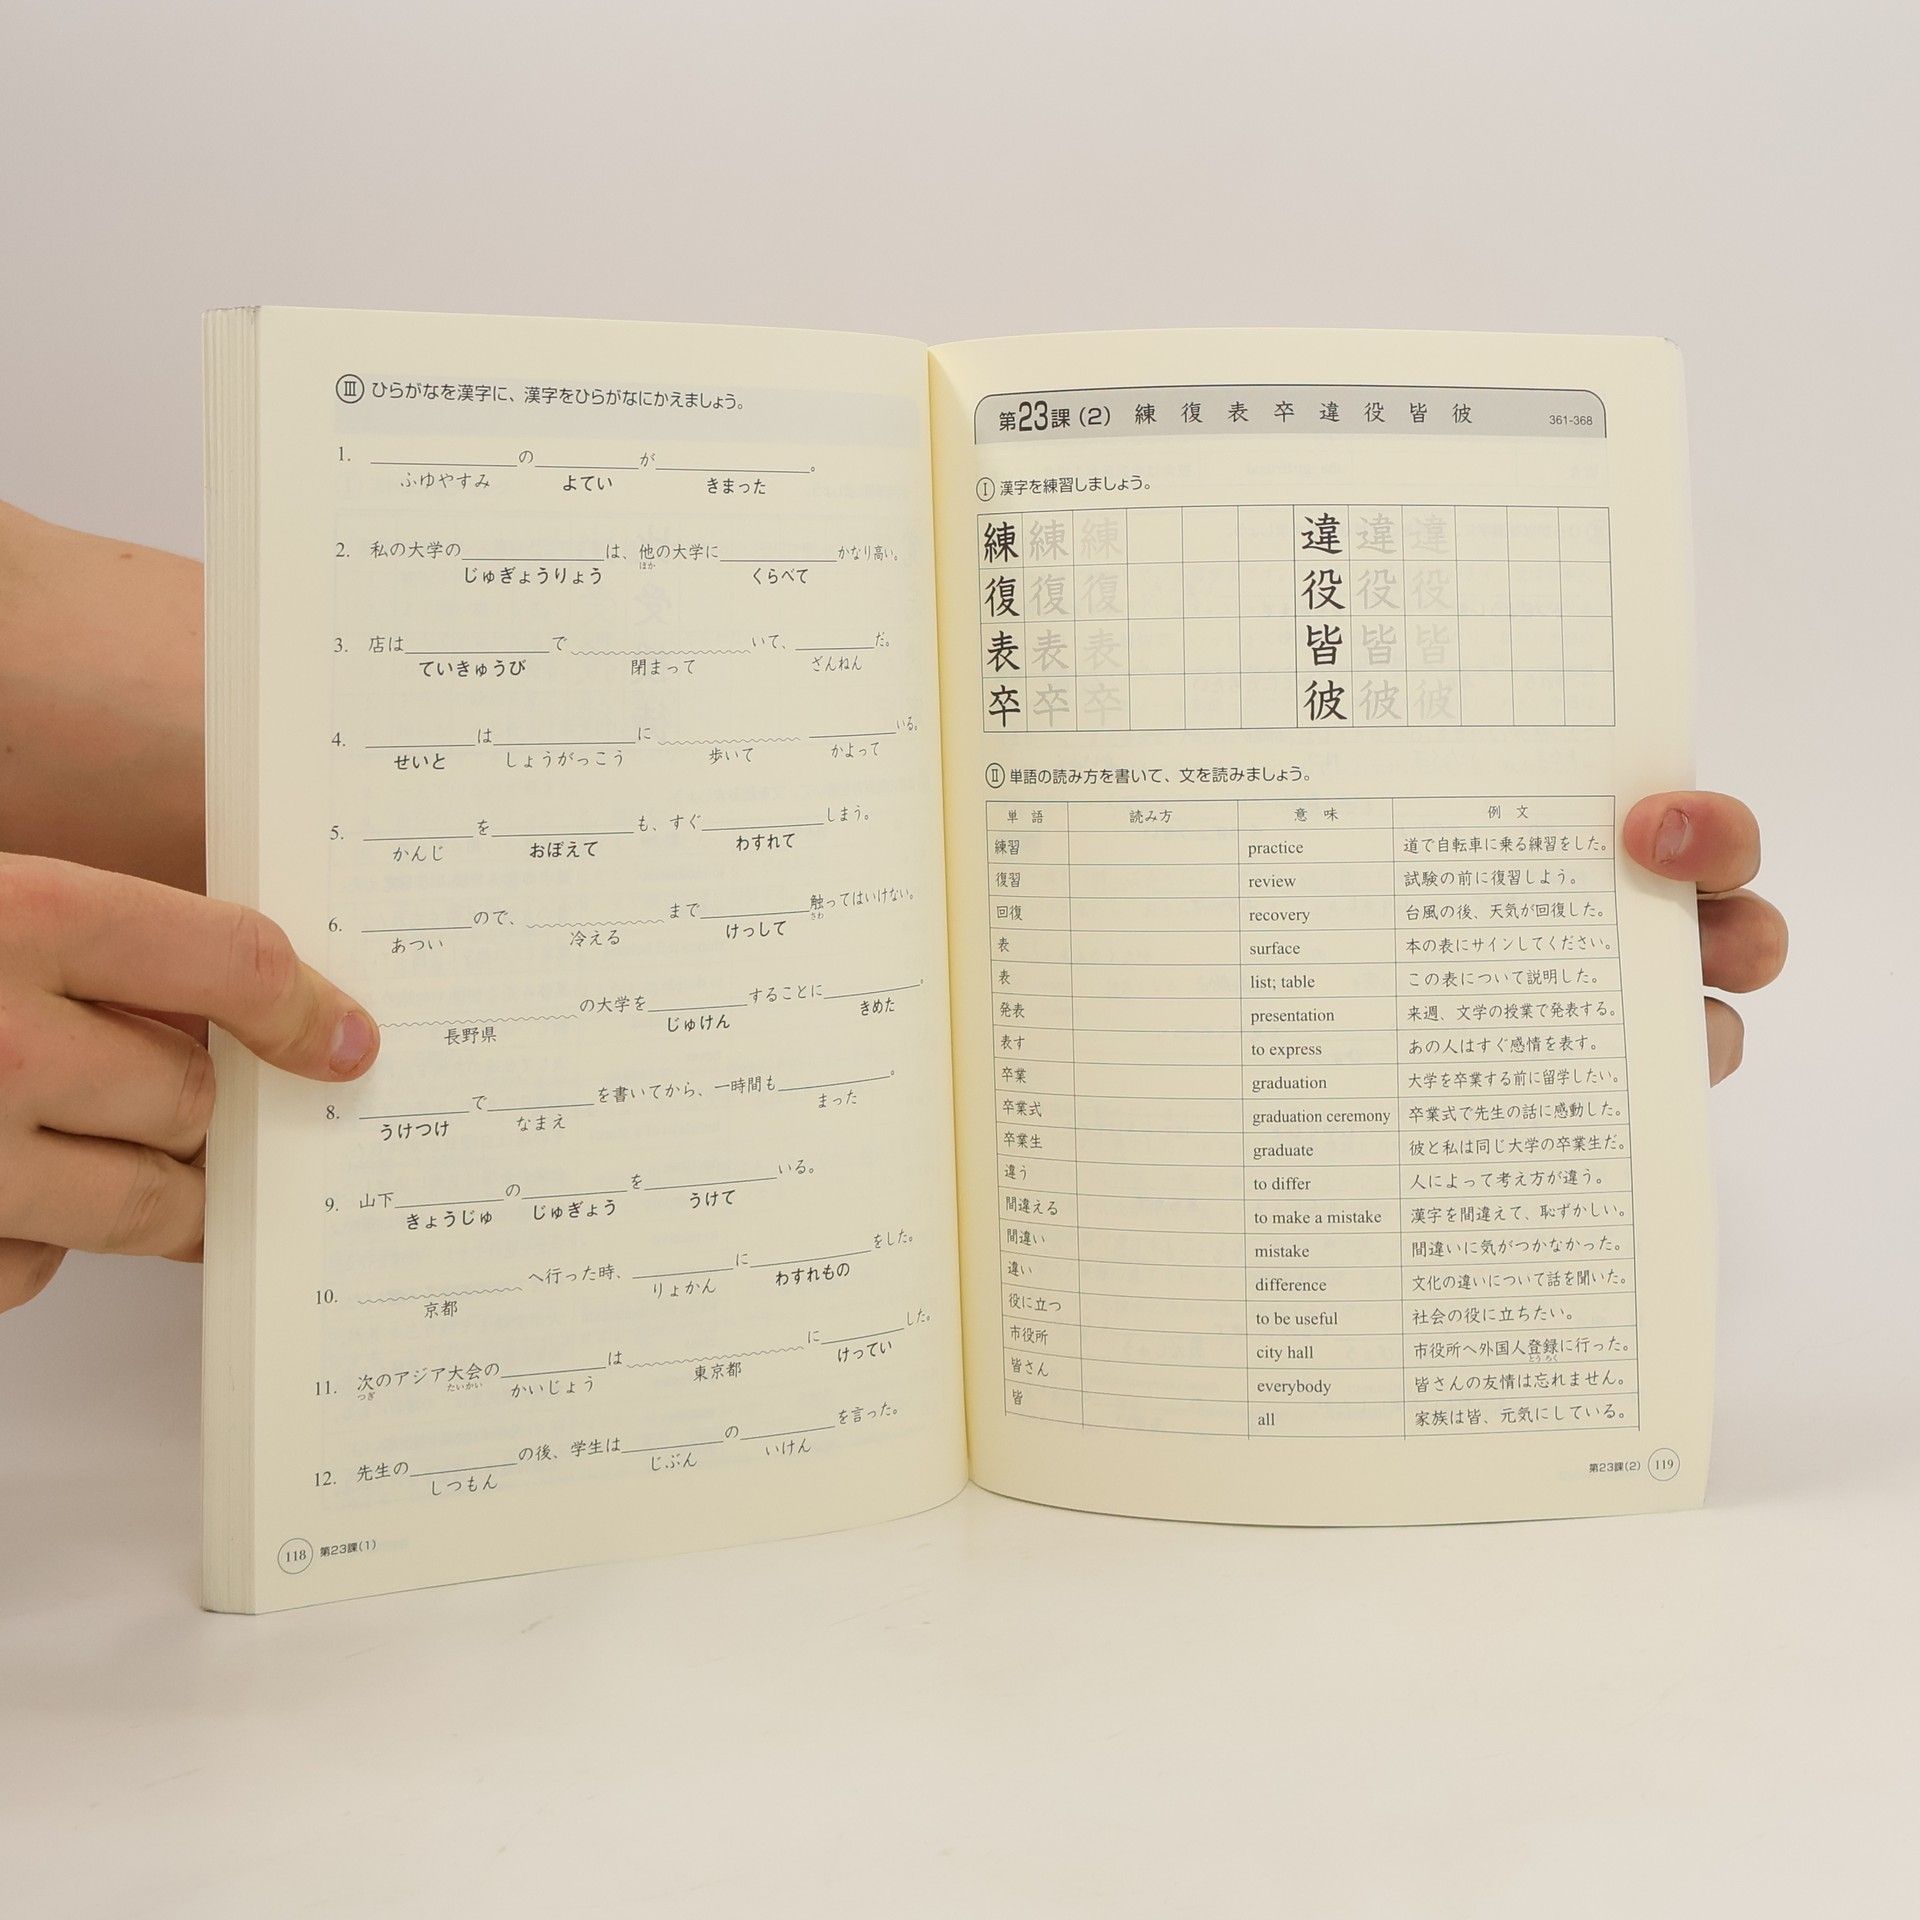 Ⅲ ひらがなを漢字に、漢字をひらがなにかえましょう。
1. の が 。
ふゆやすみ よてい きまった
2. 私の大学の は、他の大学に かなり高い。
じゅぎょうりょう ほか くらべて
3. 店は で いて、 だ。
ていきゅうび 閉まって ざんねん
4. は に いる。
せいと しょうがっこう 歩いて かよって
5. を も、すぐ しまう。
かんじ おぼえて わすれて
6. ので、 まで 触ってはいけない。
あつい 冷える けっして さわ
の大学を することに 。
長野県 じゅけん きめた
8. で を書いてから、一時間も 。
うけつけ なまえ まった
9. 山下 の を いる。
きょうじゅ じゅぎょう うけて
10. へ行った時、 に をした。
京都 りょかん わすれもの
11. 次のアジア大会の は に した。
つぎ たいかい かいじょう 東京都 けってい
12. 先生の の後、学生は の を言った。
しつもん じぶん いけん
118 第23課(1)
第23課(2) 練 復 表 卒 違 役 皆 彼 361-368
Ⅰ 漢字を練習しましょう。
練 練 練 違 違 違
復 復 復 役 役 役
表 表 表 皆 皆 皆
卒 卒 卒 彼 彼 彼
Ⅱ 単語の読み方を書いて、文を読みましょう。
単語 読み方 意味 例文
練習 practice 道で自転車に乗る練習をした。
復習 review 試験の前に復習しよう。
回復 recovery 台風の後、天気が回復した。
表 surface 本の表にサインしてください。
表 list; table この表について説明した。
発表 presentation 来週、文学の授業で発表する。
表す to express あの人はすぐ感情を表す。
卒業 graduation 大学を卒業する前に留学したい。
卒業式 graduation ceremony 卒業式で先生の話に感動した。
卒業生 graduate 彼と私は同じ大学の卒業生だ。
違う to differ 人によって考え方が違う。
間違える to make a mistake 漢字を間違えて、恥ずかしい。
間違い mistake 間違いに気がつかなかった。
違い difference 文化の違いについて話を聞いた。
役に立つ to be useful 社会の役に立ちたい。
市役所 city hall 市役所へ外国人登録に行った。
とうろく
皆さん everybody 皆さんの友情は忘れません。
皆 all 家族は皆、元気にしている。
第23課(2) 119